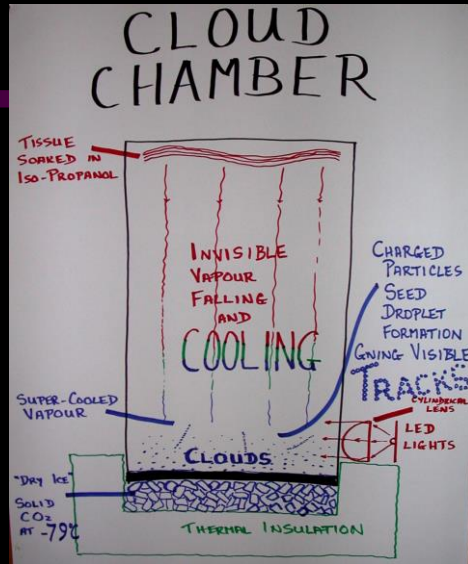 CLOUD
CHAMBER
TISSUE
SOAKED IN
ISO-PROPANOL
INVISIBLE
VAPOUR
FALLING
AND
COOLING
CHARGED
PARTICLES
SEED
DROPLET
FORMATION
GIVING VISIBLE
TRACKS
CYLINDRICAL
LENS
LED
LIGHTS
SUPER-COOLED
VAPOUR
CLOUDS
"DRY ICE"
SOLID
CO₂
AT -79°C
THERMAL INSULATION